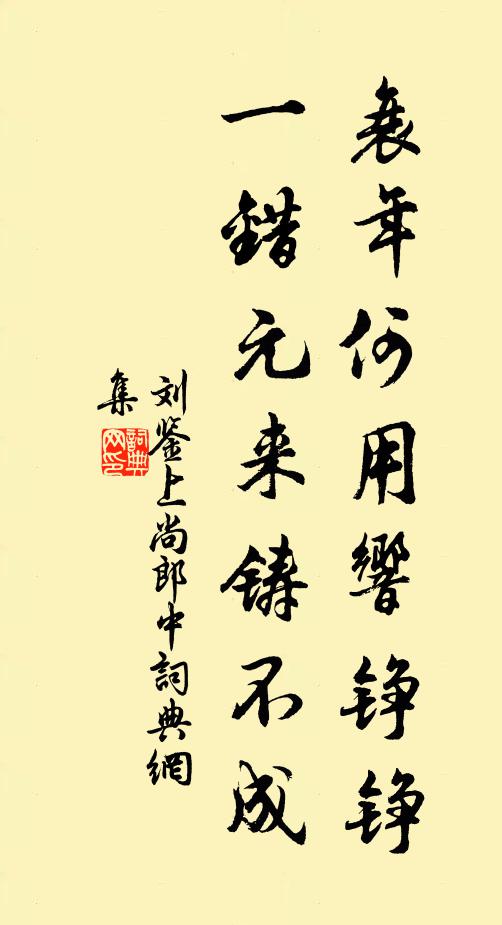 衰年何用響铮铮
一錯元来铸不成
刘鉴上尚郎中詞典網
集
詞典
网印